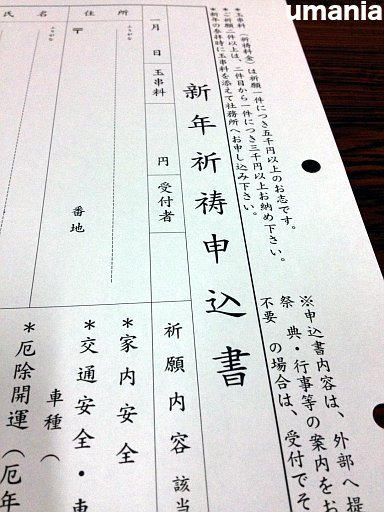 umania
*玉串料（祈祷料金）は祈願一件につき五千円以上のお志です。
*ご祈願二件以上は、二件目から一件につき三千円以上お納め下さい。
*新年の参拝時に玉串料を添えて社務所へお申し込み下さい。
※申込書内容は、外部へ提
祭典・行事等の案内をお
不要の場合は、受付でそ
新年祈祷申込書
月 日 玉串料 円 受付者
祈願内容 該当
*家内安全
*交通安全・車
車種（
*厄除開運（厄年
住所
ふりがな
〒
番地
氏名
ふりがな